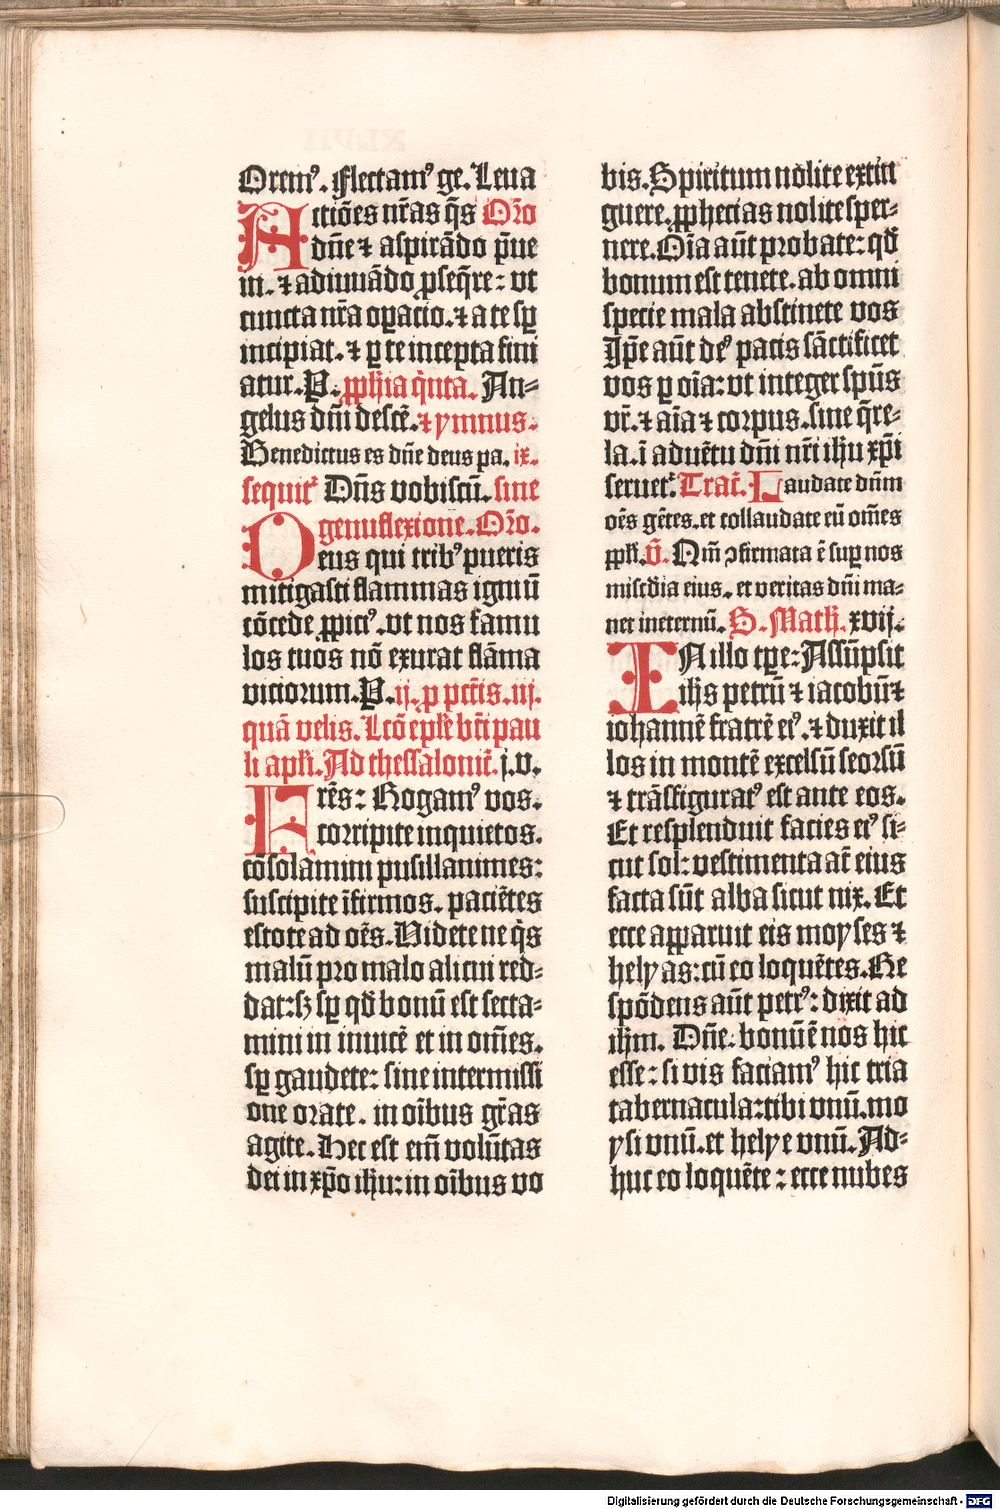 Oremꝰ. Flectamꝰ ge. Leua
Actiões nr̃as q̃s Or̃o
dñe ⁊ aspirãdo p̃ue
ni. ⁊ adiuuãdo ꝓseq̃re: vt
cuncta nr̃a oꝑacio. ⁊ a te sꝑ
incipiat. ⁊ ꝑ te incepta fini
atur. P. ꝓph̃ia q̃nta. An-
gelus dñi descẽ. ⁊ ymnus.
Benedictus es dñe deus pa. ix.
sequit᷑ Dñs vobiscũ. sine
genuflexione. Or̃o.
Deus qui tribꝰ pueris
mitigasti flammas igniũ
cõcede ꝓpiciꝰ. vt nos famu
los tuos nõ exurat flãma
viciorum. P. ij. ꝑ pctĩs. iij.
quã velis. Lcõ epl̃e bt̃i pau
li apl̃i. Ad thessalonic̃. j. v.
Frẽs: Rogamꝰ vos.
corripite inquietos.
cõsolamini pusillanimes:
suscipite ĩfirmos. paciẽtes
estote ad oẽs. Videte ne q̃s
malũ pro malo alicui red-
dat: sꝫ sꝑ qđ bonũ est secta-
mini in inuicẽ et in om̃es.
sꝑ gaudete: sine intermissi
one orate. in oĩbus gr̃as
agite. Hec est em̃ volũtas
dei in xp̃o ih̃u: in oĩbus vo
bis. Spiritum nolite extin
guere. ꝓphecias nolite sper-
nere. Oĩa aũt probate: qđ
bonum est tenete. ab omni
specie mala abstinete vos
Ip̃e aũt deꝰ pacis sãctificet
vos ꝑ oĩa: vt integer spũs
vr̃. ⁊ aĩa ⁊ corpus. sine q̃re-
la. ĩ aduẽtu dñi nr̃i ih̃u xp̃i
seruet᷑. Tract̃. Laudate dñm
oẽs gẽtes. et collaudate eũ om̃es
ppl̃i. v̄. Qm̃ ↄfirmata ẽ suꝑ nos
mis̃cdia eius. et veritas dñi ma-
net in eternũ. S. Math̃. xvij.
IN illo tp̃e: Assũpsit
ih̃s petrũ ⁊ iacobũ ⁊
iohannẽ fratrẽ eiꝰ. ⁊ duxit il
los in montẽ excelsũ seorsũ
⁊ trãsfiguratꝰ est ante eos.
Et resplenduit facies eiꝰ si-
cut sol: vestimenta aũt eius
facta sũt alba sicut nix. Et
ecce apparuit eis moyses ⁊
helyas: cũ eo loquẽtes. Re
spõdens aũt petrꝰ: dixit ad
ih̃m. Dñe: bonũ ẽ nos hic
esse: si vis faciamꝰ hic tria
tabernacula: tibi vnũ. mo
ysi vnũ. et helye vnũ. Ad-
huc eo loquẽte: ecce nubes
Digitalisierung gefördert durch die Deutsche Forschungsgemeinschaft - DFG